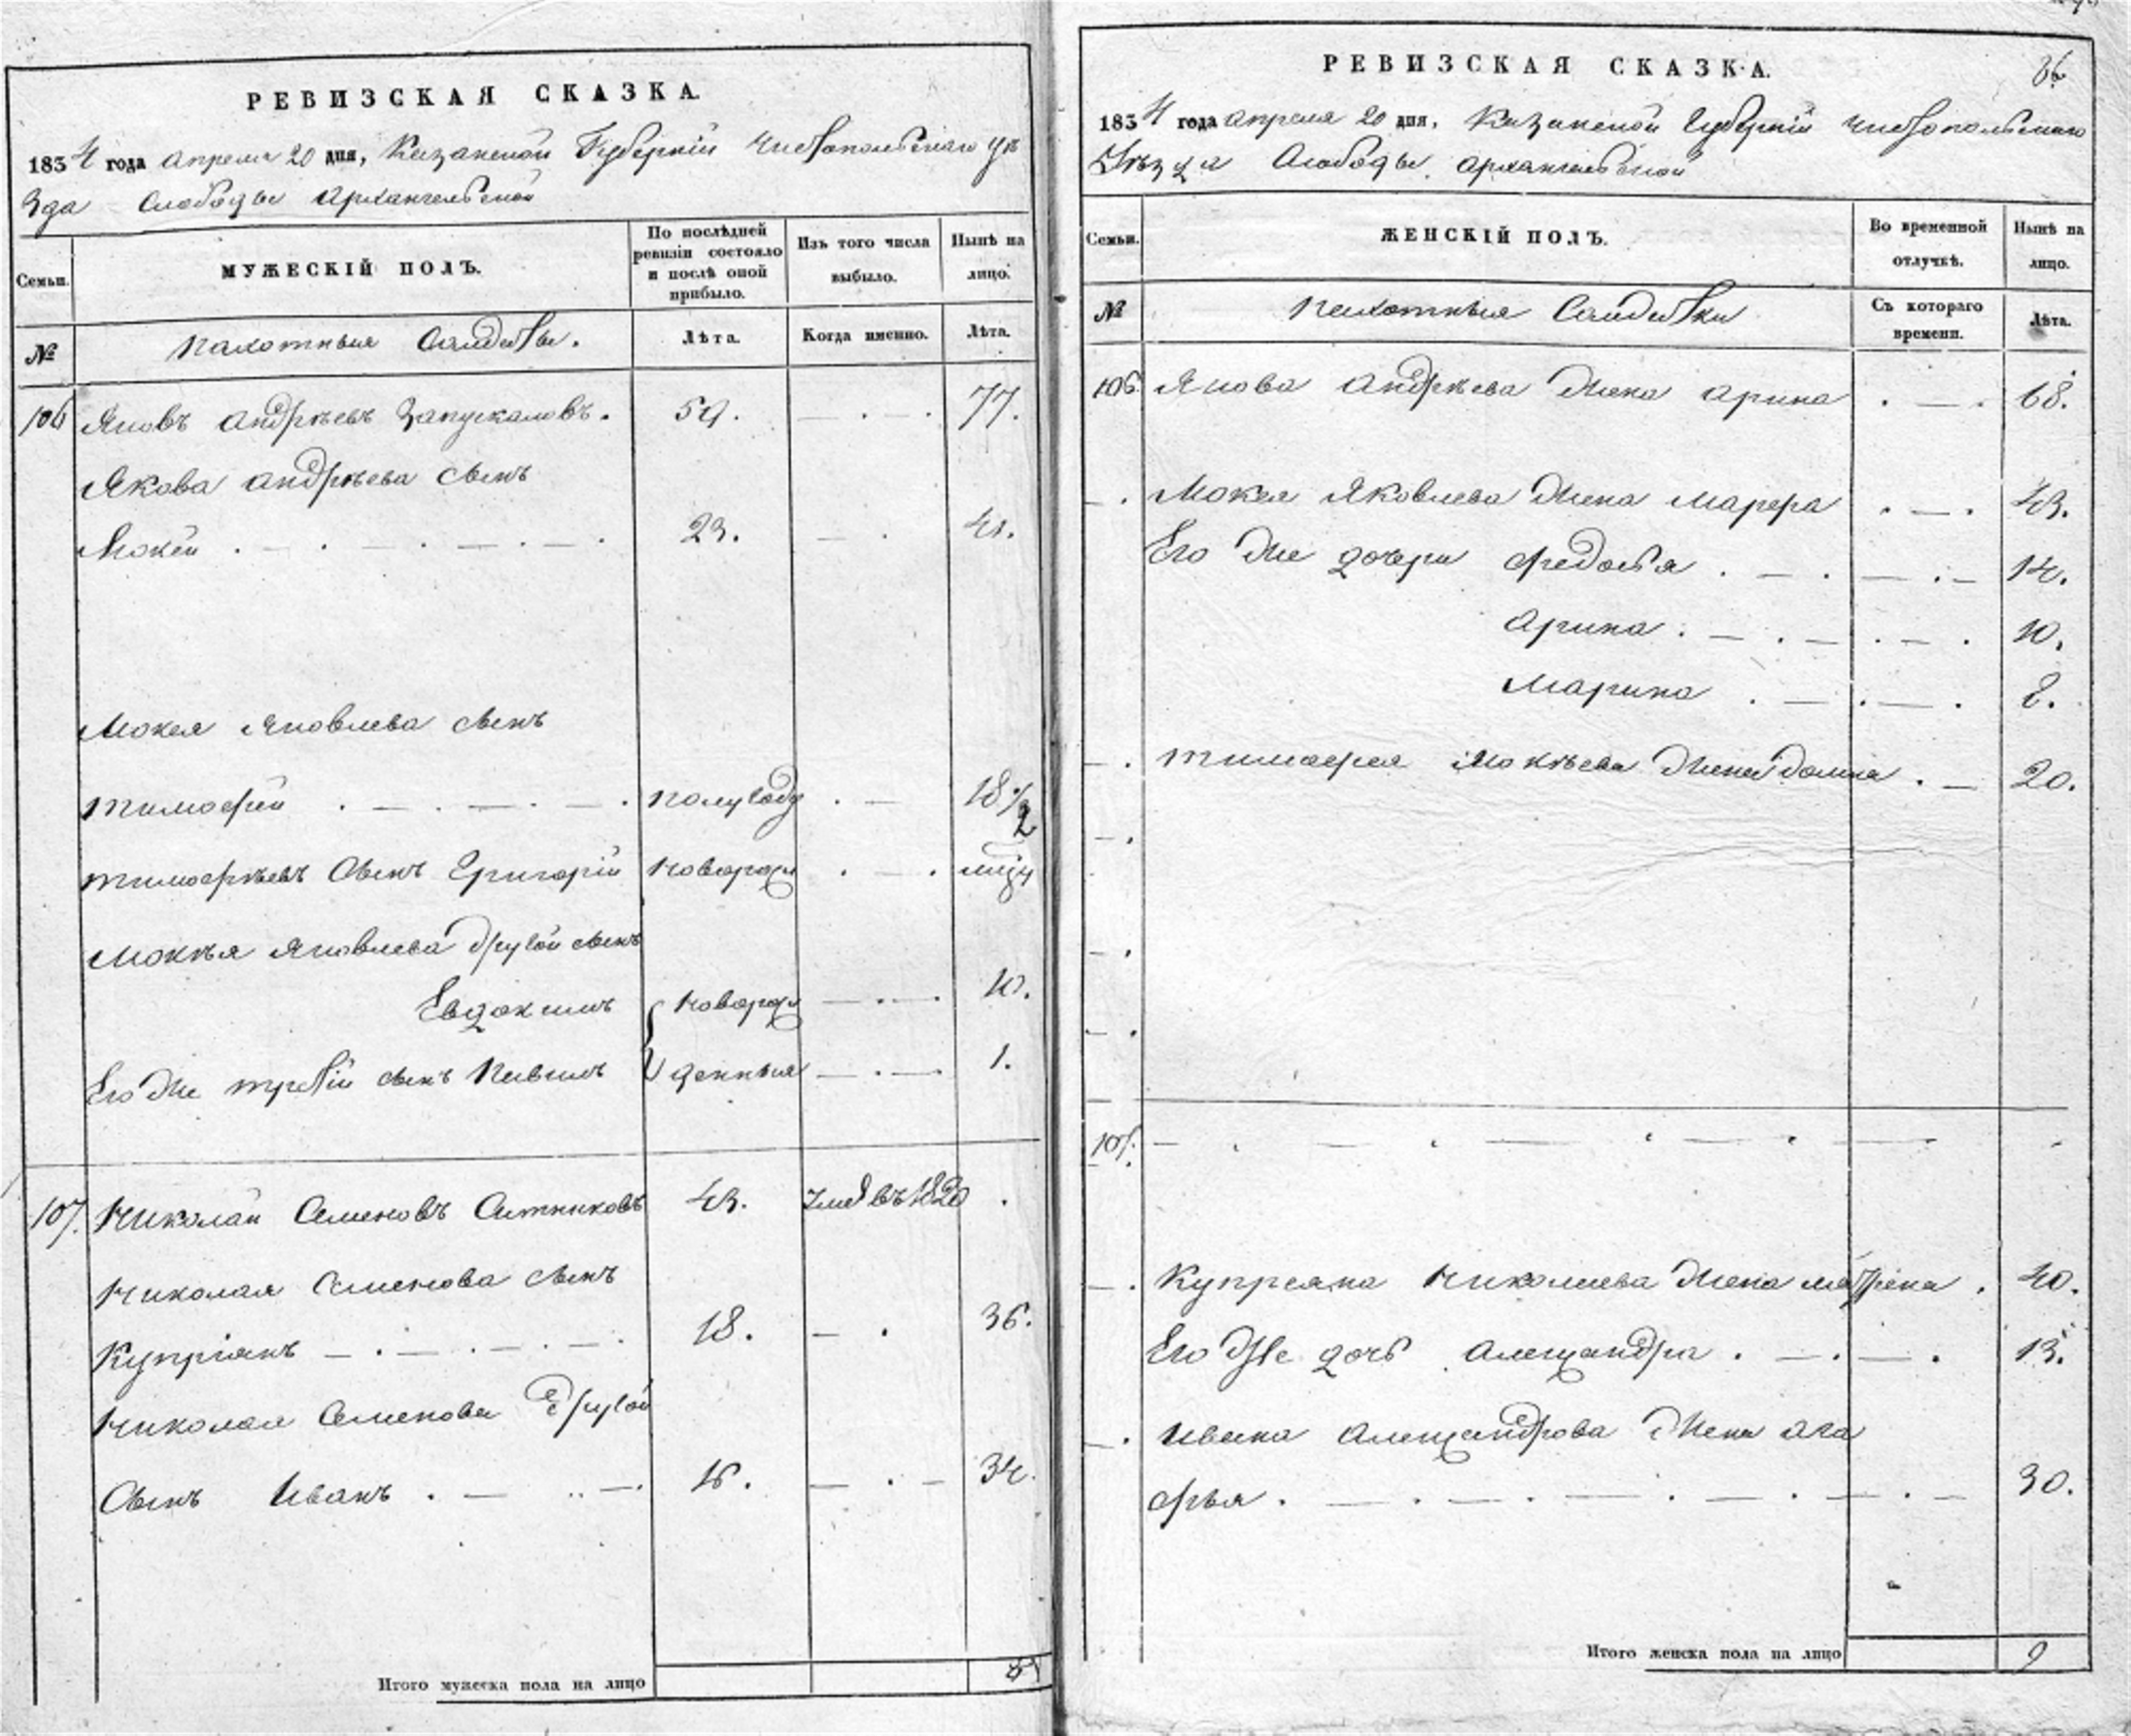 РЕВИЗСКАЯ СКАЗКА.
1834 года апреля 20 дня, Казанской Губернiи Чистопольскаго уѣ
зда Слободы Архангельской
Семьи.
МУЖЕСКIЙ ПОЛЪ.
По послѣдней
ревизiи состояло
и послѣ оной
прибыло.
Изъ того числа
выбыло.
Нынѣ на
лицо.
№
пахотныя Солдаты.
Лѣта.
Когда именно.
Лѣта.
106 Яковъ Андрѣевъ Запускаловъ. 59. 77.
Якова Андрѣева сынъ
Мокей 23. 41.
Мокея Яковлева сынъ
Тимофей полугоду 18 1/2
Тимофѣевъ Сынъ Григорiй новорож
Мокѣя Яковлева другой сынъ
Евдокимъ новорож 10.
Его же третiй сынъ денныя 1.
107. Николай Семеновъ Ситниковъ 43. 1820
Николая Семенова сынъ
Купрiянъ 18. 36.
Николая Семенова другой
Сынъ Иванъ 16. 34.
Итого мужеска пола на лицо
РЕВИЗСКАЯ СКАЗКА.
36.
1834 года апреля 20 дня, Казанской Губернiи Чистопольскаго
Уѣзда Слободы Архангельской
Семьи.
ЖЕНСКIЙ ПОЛЪ.
Во временной
отлучкѣ.
Нынѣ на
лицо.
№
пахотныя Солдатки
Съ котораго
времени.
Лѣта.
106. Якова Андрѣева Жена Арина 68.
Мокея Яковлева Жена Марфа 43.
Его Же дочери Федосья 14.
Арина 10.
Марина 8.
Тимофея Мокѣева Жена Домна 20.
107.
Купреяна Николаева Жена Матрена 40.
Его Же дочь Александра 13.
Ивана Александрова Жена Ага
фья 30.
Итого женска пола на лицо 9